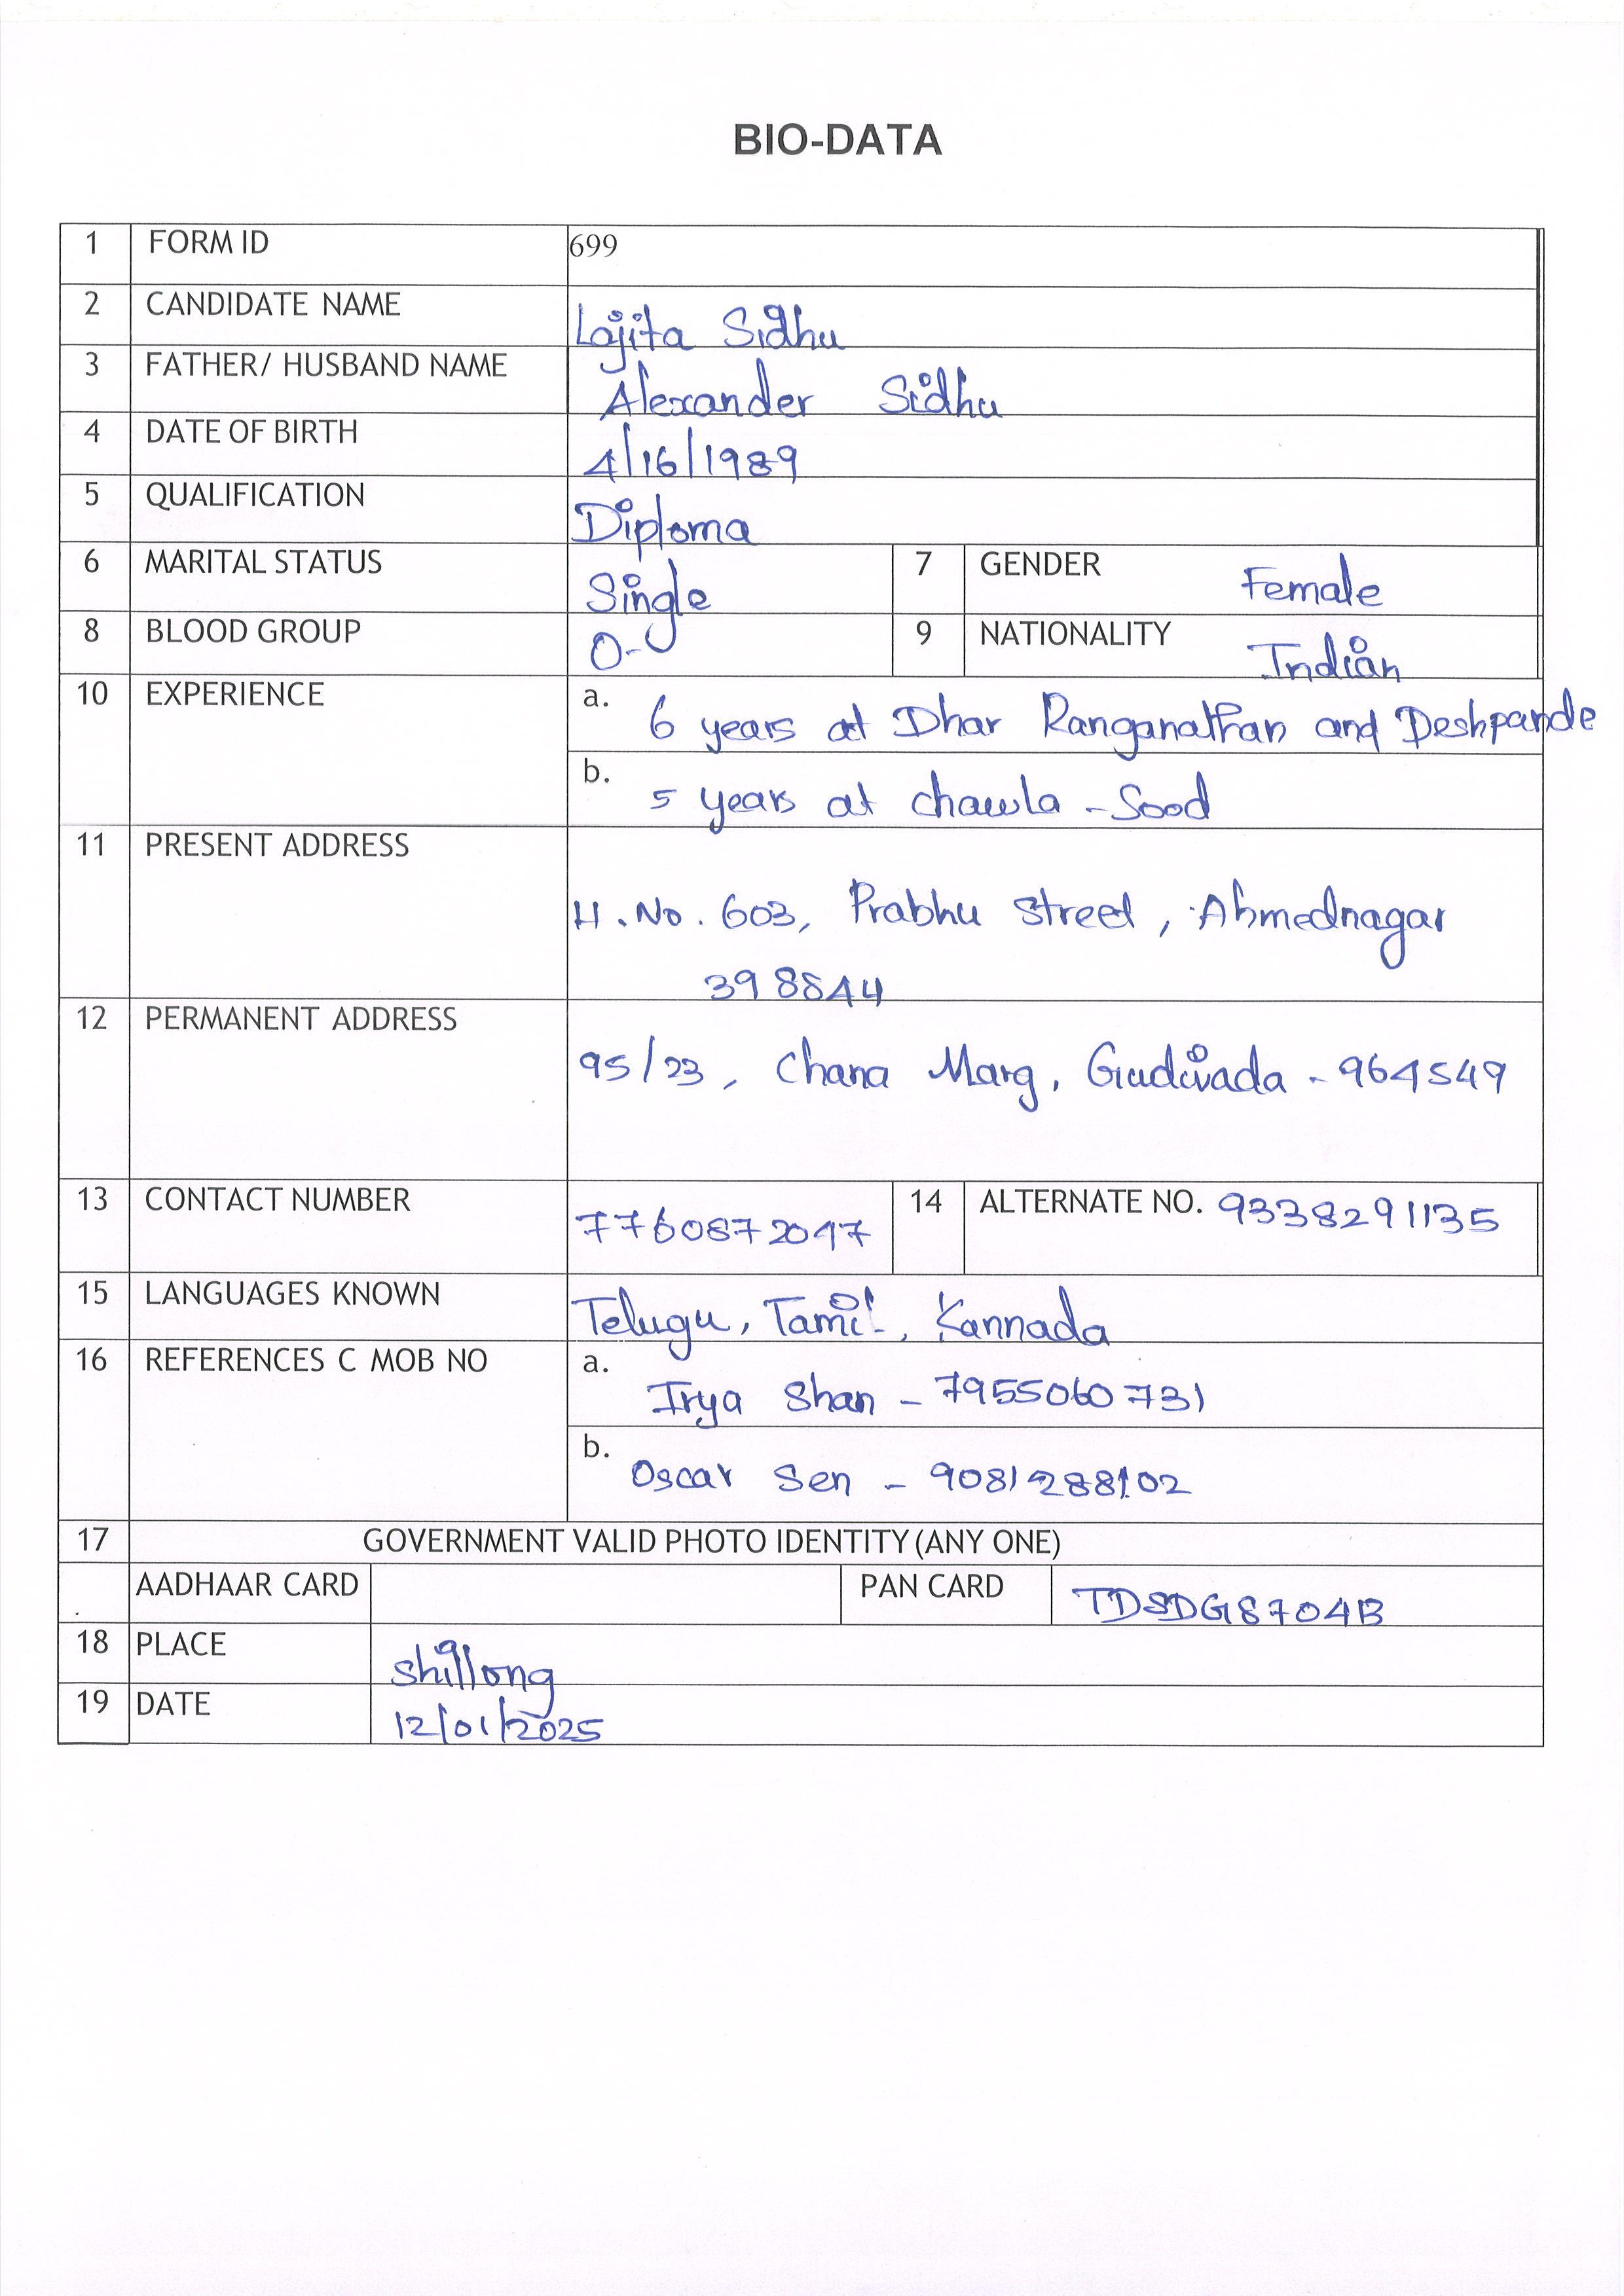 BIO-DATA
1 FORM ID 699
2 CANDIDATE NAME Lajita Sidhu
3 FATHER/ HUSBAND NAME Alexander Sidhu
4 DATE OF BIRTH 4/16/1989
5 QUALIFICATION Diploma
6 MARITAL STATUS Single 7 GENDER Female
8 BLOOD GROUP O- 9 NATIONALITY Indian
10 EXPERIENCE a. 6 years at Dhar Ranganathan and Deshpande
b. 5 years at chawla - Sood
11 PRESENT ADDRESS
H.No. 603, Prabhu Street, Ahmednagar
398844
12 PERMANENT ADDRESS
95/23, Chana Marg, Gudivada - 964549
13 CONTACT NUMBER 7760872047 14 ALTERNATE NO. 9338291135
15 LANGUAGES KNOWN Telugu, Tamil, Kannada
16 REFERENCES C MOB NO a. Irya Shan - 7955060731
b. Oscar Sen - 9081288102
17 GOVERNMENT VALID PHOTO IDENTITY (ANY ONE)
AADHAAR CARD PAN CARD TDSDG8704B
18 PLACE Shillong
19 DATE 12/01/2025